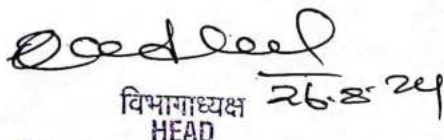 26.8.24
विभागाध्यक्ष
HEAD